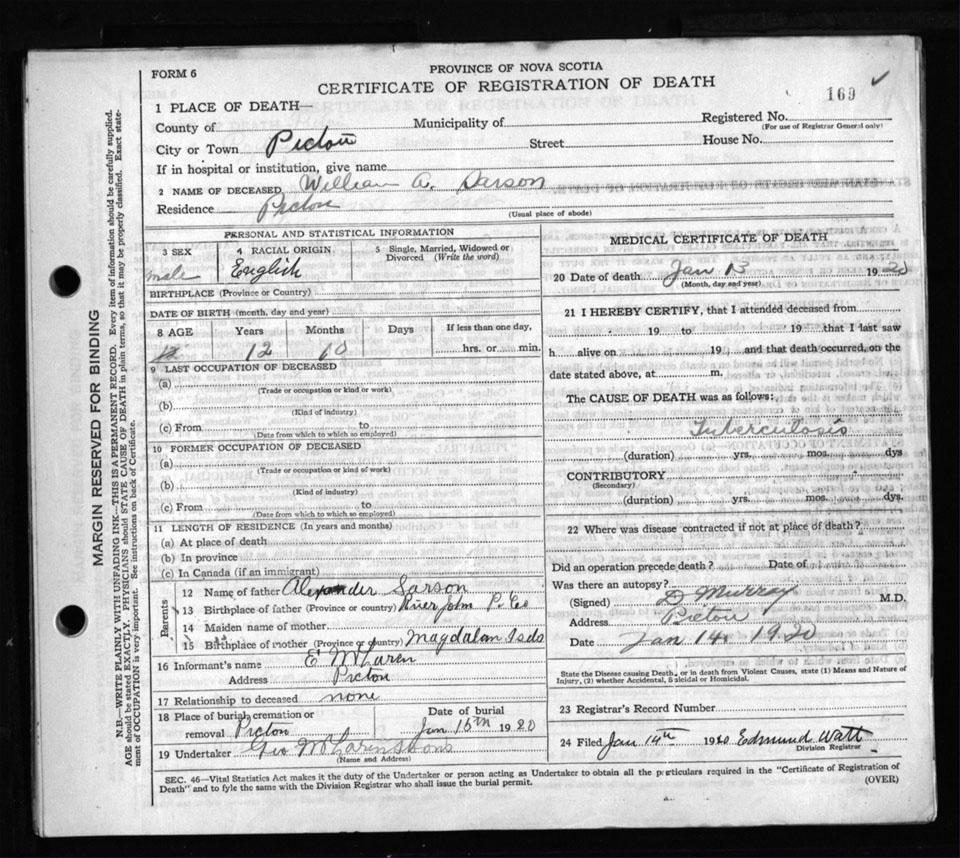 FORM 6
PROVINCE OF NOVA SCOTIA
CERTIFICATE OF REGISTRATION OF DEATH
169
1 PLACE OF DEATH—
County of
Municipality of
Registered No.
(For use of Registrar General only)
City or Town Pictou
Street
House No.
If in hospital or institution, give name
2 NAME OF DECEASED William A. Sarson
Residence Pictou
(Usual place of abode)
PERSONAL AND STATISTICAL INFORMATION
3 SEX male
4 RACIAL ORIGIN English
5 Single, Married, Widowed or Divorced (Write the word)
BIRTHPLACE (Province or Country)
DATE OF BIRTH (month, day and year)
8 AGE Years Months Days If less than one day,
12 10 hrs. or min.
9 LAST OCCUPATION OF DECEASED
(a)
(Trade or occupation or kind or work)
(b)
(Kind of industry)
(c) From to
(Date from which to which so employed)
10 FORMER OCCUPATION OF DECEASED
(a)
(Trade or occupation or kind of work)
(b)
(Kind of industry)
(c) From to
(Date from which to which so employed)
11 LENGTH OF RESIDENCE (In years and months)
(a) At place of death
(b) In province
(c) In Canada (if an immigrant)
Parents
12 Name of father Alexander Sarson
13 Birthplace of father (Province or country) River John P. Co
14 Maiden name of mother
15 Birthplace of mother (Province or country) Magdalan Isds
16 Informant's name E McLaren
Address Pictou
17 Relationship to deceased none
18 Place of burial, cremation or removal Pictou
Date of burial Jan 15th 1920
19 Undertaker Geo McLaren & Sons
(Name and Address)
MEDICAL CERTIFICATE OF DEATH
20 Date of death Jan 13 1920
(Month, day and year)
21 I HEREBY CERTIFY, that I attended deceased from
19 to 19 that I last saw
h alive on 19 and that death occurred, on the
date stated above, at m.
The CAUSE OF DEATH was as follows:
Tuberculosis
(duration) yrs. mos. dys
CONTRIBUTORY
(Secondary)
(duration) yrs. mos. dys.
22 Where was disease contracted if not at place of death?
Did an operation precede death? Date of
Was there an autopsy?
(Signed) D Murray M.D.
Address Pictou
Date Jan 14. 1920
State the Disease causing Death, or in death from Violent Causes, state (1) Means and Nature of Injury, (2) whether Accidental, Suicidal or Homicidal.
23 Registrar's Record Number
24 Filed Jan 14th 1920 Edmund Watt
Division Registrar
SEC. 46—Vital Statistics Act makes it the duty of the Undertaker or person acting as Undertaker to obtain all the particulars required in the "Certificate of Registration of
Death" and to fyle the same with the Division Registrar who shall issue the burial permit.
(OVER)
MARGIN RESERVED FOR BINDING
N.B.—WRITE PLAINLY WITH UNFADING INK—THIS IS A PERMANENT RECORD. Every item of information should be carefully supplied.
AGE should be stated EXACTLY. PHYSICIANS should STATE CAUSE OF DEATH in plain terms, so that it may be properly classified. Exact statement of OCCUPATION is very important. See instructions on back of Certificate.